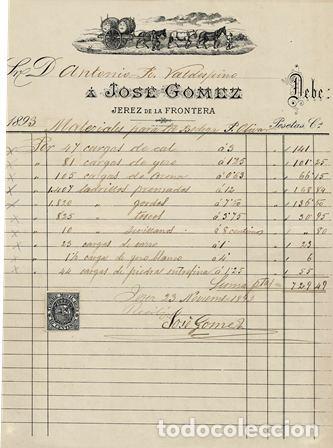 Sr. D. Antonio R. Valdespino
Á JOSÉ GOMEZ Debe:
JEREZ DE LA FRONTERA
1893 Materiales para Pesetas Cs.
Por 47 cargas de cal á 3 141
" 81 cargas de yeso á 1'25 101'25
" 105 cargas de arena á 0'63 66'15
" 1.407 ladrillos prensados á 12 168'84
" 1.820 " gordos á 7'50 136'50
" 825 " toscos á 3'75 30'95
" 10 " sevillano á 8 centimos " 80
" 23 cargas de barro á 1 23
" 1½ cargas de yeso blanco á 4 6
" 44 cargas de piedras á 1,25 55
Suma ptas 729'49
Jerez 23 Noviembre 1893
Recibí
José Gomez
todocoleccion